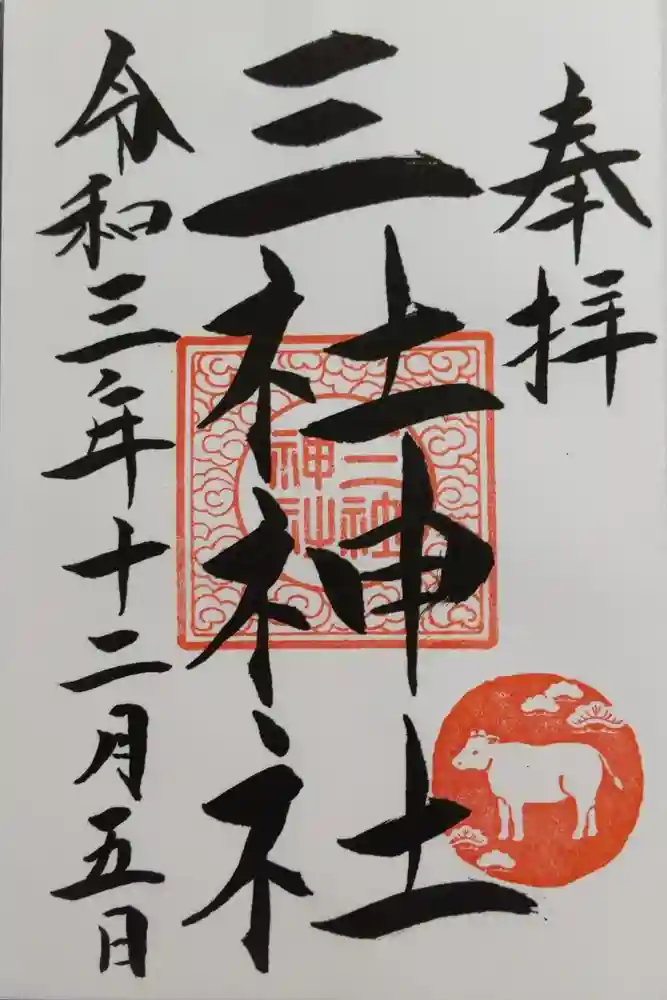 奉拝
三社神社
三社
神社
令和三年十二月五日